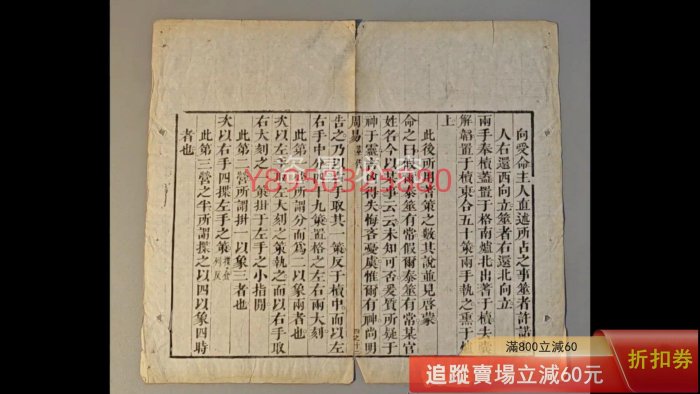 向受命主人直述所占之事筮者許諾
人右還西向立筮者右還北向立
兩手奉櫝蓋置于格南爐北出蓍于櫝去囊
解韜置于櫝東合五十策兩手執之熏于爐
上
此後所用蓍策之數其說並見啓蒙
命之曰假爾泰筮有常假爾泰筮有常某官
姓名今以某事云云未知可否爰質所疑于
神于靈吉凶得失悔吝憂虞惟爾有神尚明
周易
告之乃以右手取其一策反于櫝中而以左
右手中分四十九策置格之左右兩大刻
此第一營所謂分而為二以象兩者也
次以左手取左大刻之策執之而以右手取
右大刻之一策掛于左手之小指間
此第二營所謂掛一以象三者也
次以右手四揲左手之策
此第三營之半所謂揲之以四以象四時
者也
滿800立減60
追蹤賣場立減60元
折扣券